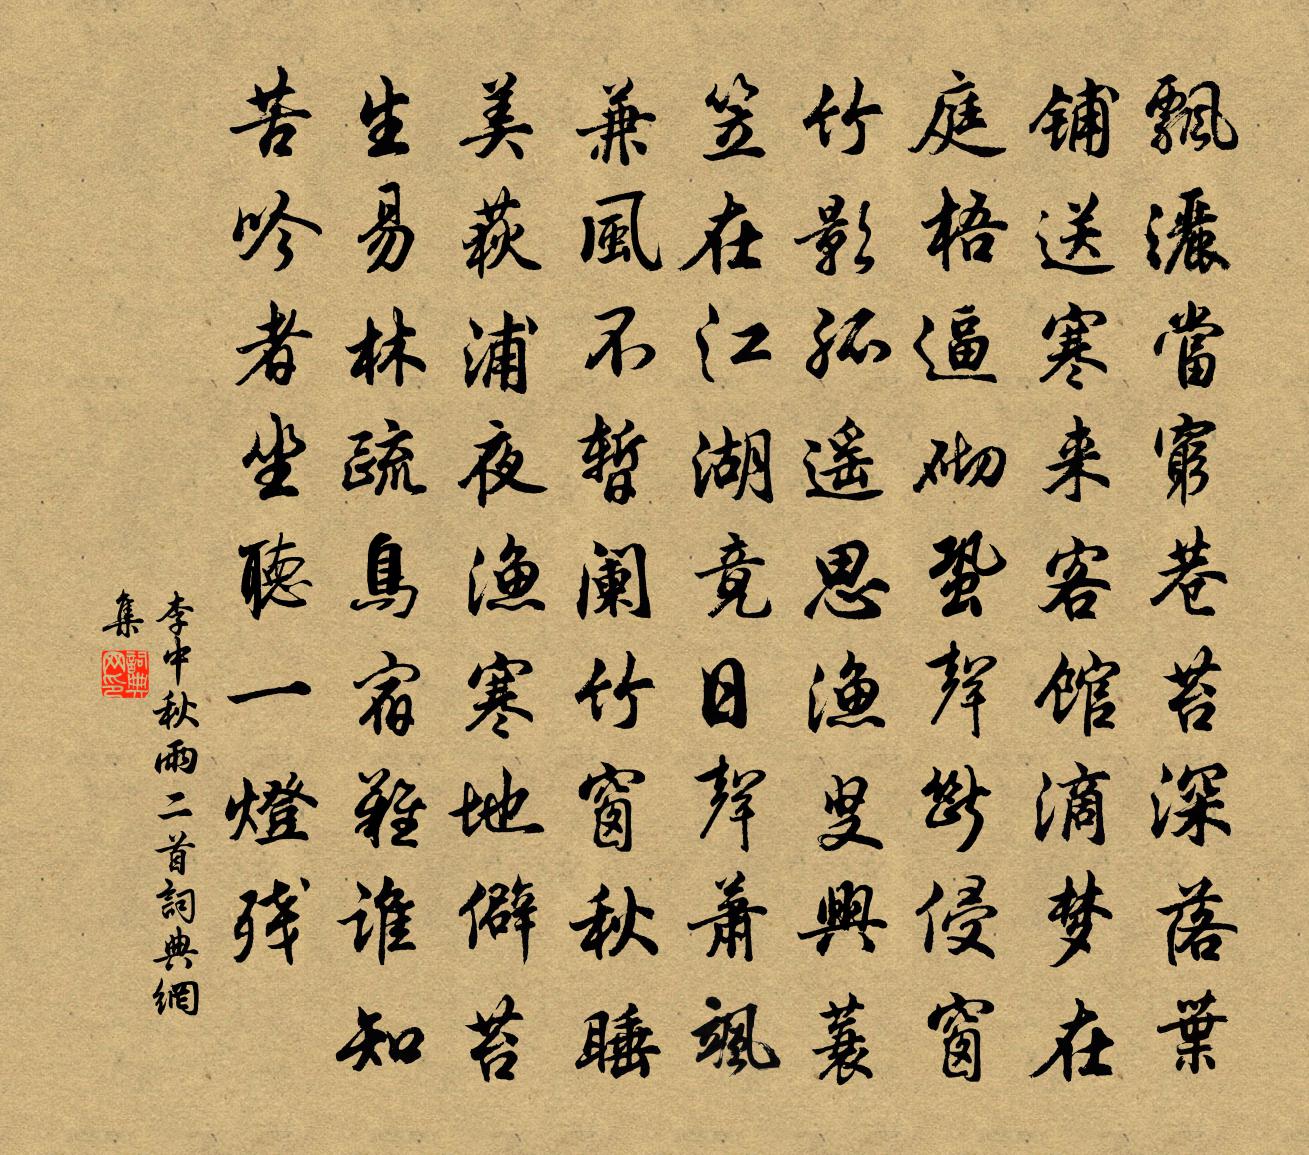 飄灑當窮巷苔深落葉
鋪送寒来客館滴梦在
庭梧逼砌蛩聲斷侵窗
竹影孤遥思漁叟興蓑
笠在江湖竟日聲蕭颯
兼風不暫闌竹窗秋睡
美荻浦夜漁寒地僻苔
生易林疏鳥宿難誰知
苦吟者坐聽一燈残
李中秋雨二首詞典網
集
詞典网印